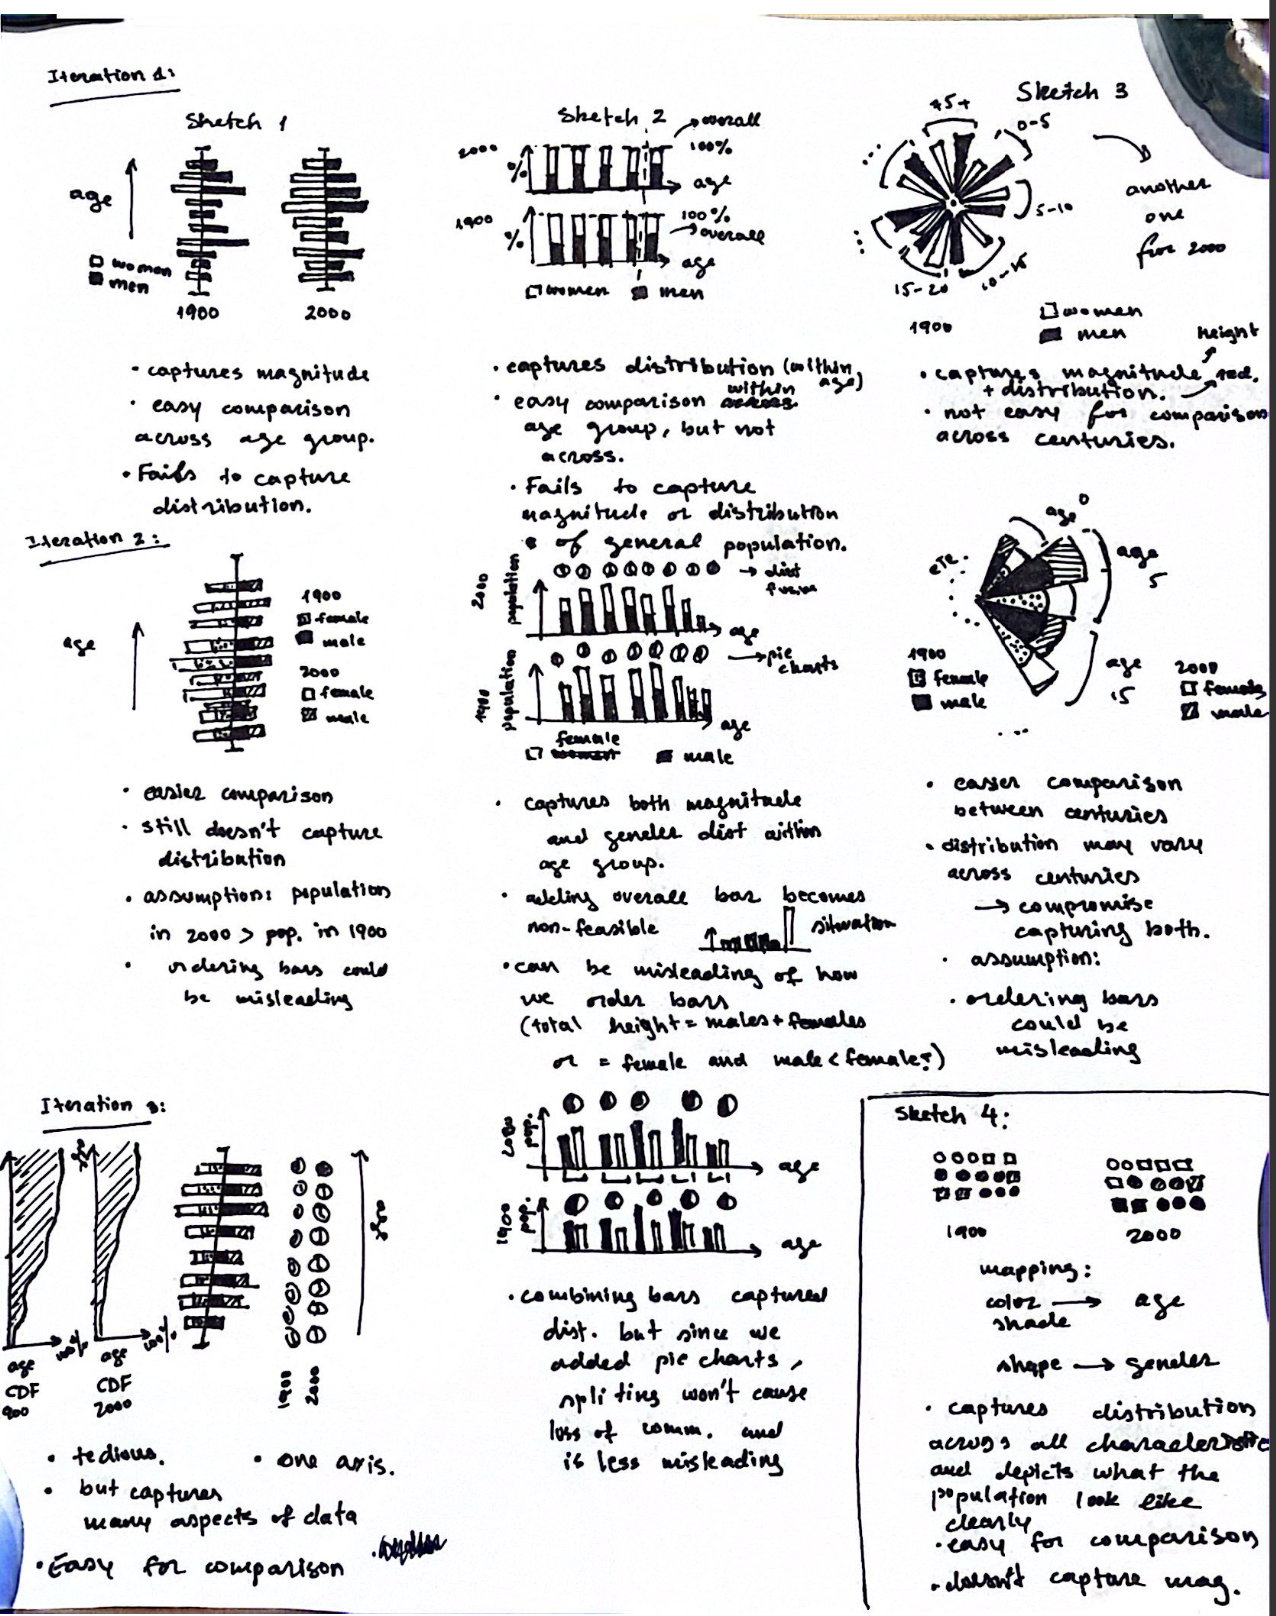 Iteration 1:
Sketch 1
age
women
men
1900
2000
• captures magnitude
• easy comparison
across age group.
• Fails to capture
distribution.
Sketch 2
overall
2000
%
100%
age
1900
%
100%
overall
age
women men
• captures distribution (within age)
• easy comparison within
age group, but not
across.
• Fails to capture
magnitude or distribution
of general population.
Sketch 3
75+
0-5
5-10
10-15
15-20
...
...
another
one
for 2000
1900
women
men
height
• captures magnitude rad.
+ distribution.
• not easy for comparison
across centuries.
Iteration 2:
age
1900
female
male
2000
female
male
• easier comparison
• still doesn't capture
distribution
• assumption: population
in 2000 > pop. in 1900
• ordering bars could
be misleading
2000
population
→ dist
age
1900
population
→ pie
charts
age
female
women
male
• captures both magnitude
and gender dist within
age group.
• adding overall bar becomes
non-feasible situation
• can be misleading of how
we order bars
(total height = males + females
or = female and male < female?)
age 0
etc.
age
5
age
15
...
1900
female
male
2000
female
male
• easier comparison
between centuries
• distribution may vary
across centuries
→ compromise
capturing both.
• assumption:
• ordering bars
could be
misleading
Iteration 3:
100%
100%
age
CDF
900
age
CDF
2000
1900
2000
age
• tedious.
• one axis.
• but captures
many aspects of data
• Easy for comparison
2000
pop.
age
1900
pop.
age
• combining bars captured
dist. but since we
added pie charts,
spliting won't cause
loss of comm. and
is less misleading
Sketch 4:
1900
2000
mapping:
color → age
shade
shape → gender
• captures distribution
across all characteristic
and depicts what the
population look like
clearly
• easy for comparison
• doesn't capture mag.